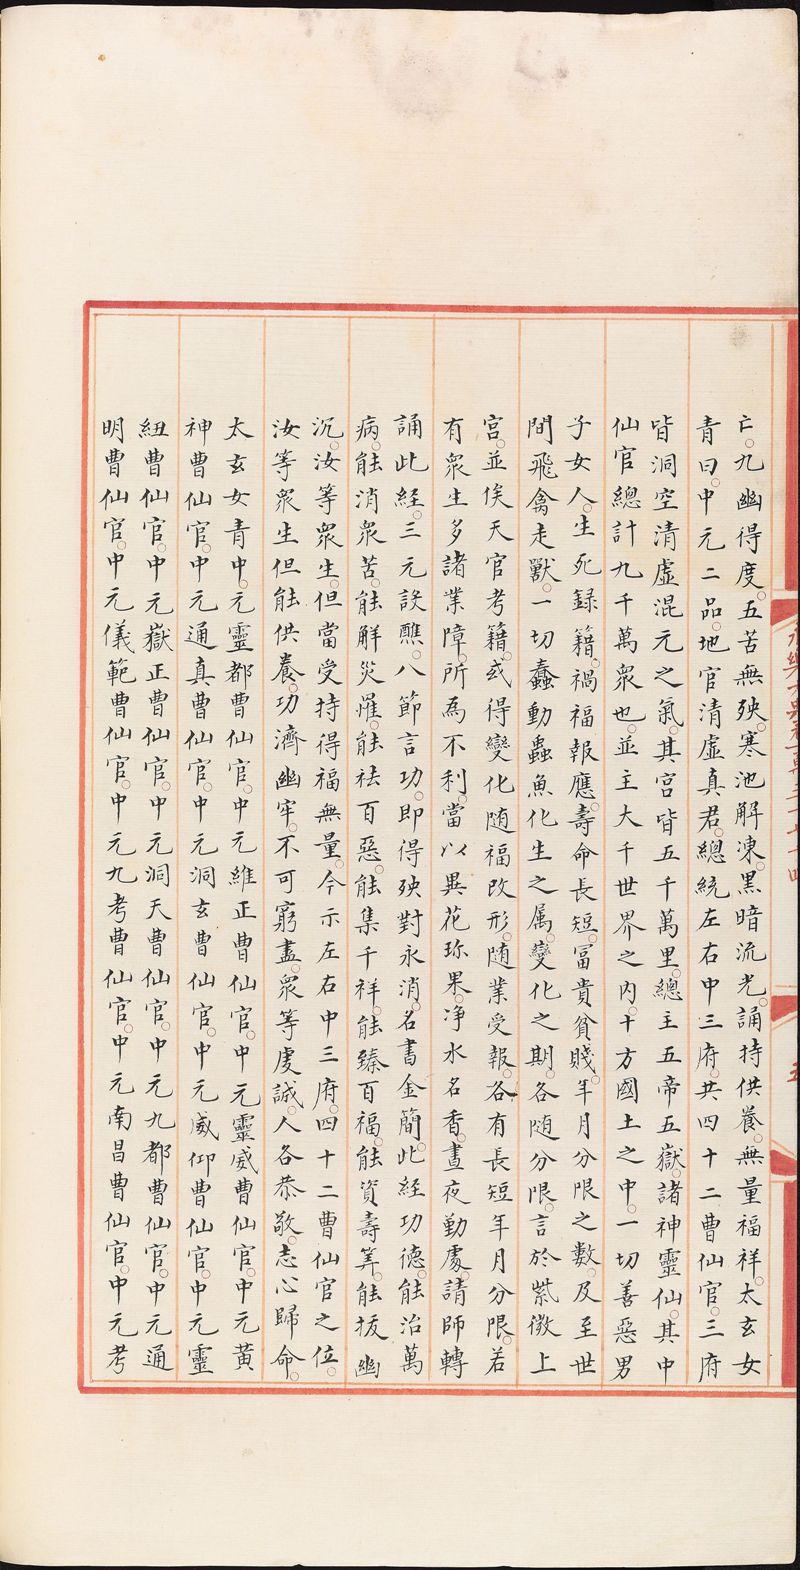 亡。九幽得度。五苦無殃。寒池解凍。黑暗流光。誦持供養。無量福祥。太玄女
青曰。中元二品。地官清虛真君。總統左右中三府。共四十二曹仙官。三府
皆洞空清虛混元之氣。其宮皆五千萬里。總主五帝五嶽。諸神靈仙。其中
仙官總計九千萬眾也。並主大千世界之內。十方國土之中。一切善惡男
子女人。生死録籍。禍福報應。壽命長短。富貴貧賤。年月分限之數。及至世
間飛禽走獸。一切蠢動蟲魚化生之属。變化之期。各随分限。言於紫微上
宮。並俟天官考籍。或得變化随福改形。随業受報。各有長短年月分限。若
有眾生多諸業障。所為不利。當以異花珎果。净水名香。晝夜勤䖍。請師轉
誦此経。三元設醮。八節言功。即得殃對永消。名書金簡。此経功德。能治萬
病。能消眾苦。能解災罹。能祛百惡。能集千祥。能臻百福。能資壽筭。能拔幽
沉。汝等眾生。但當受持得福無量。今示左右中三府。四十二曹仙官之位。
汝等眾生但能供養。功濟幽牢。不可窮盡。眾等虔誠。人各恭敬。志心歸命。
太玄女青中。元靈都曹仙官。中元維正曹仙官。中元靈威曹仙官。中元黃
神曹仙官。中元通真曹仙官。中元洞玄曹仙官。中元威仰曹仙官。中元靈
紐曹仙官。中元嶽正曹仙官。中元洞天曹仙官。中元九都曹仙官。中元通
明曹仙官。中元儀範曹仙官。中元九考曹仙官。中元南昌曹仙官。中元考